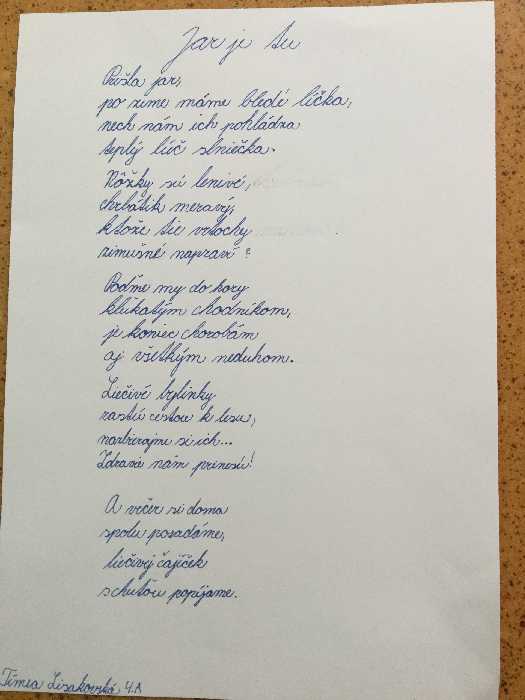 Jar je tu
Prišla jar,
po zime máme bledé líčka,
nech nám ich pohládza
teplý lúč slniečka.
Nôžky sú lenivé,
chrbátik meravý,
ktože tie vrtochy
zimušné napraví?
Poďme my do hory
kľukatým chodníkom,
je koniec chorobám
aj všetkým neduhom.
Liečivé bylinky
rastú cestou k lesu,
nazbierajme si ich...
Zdravie nám prinesú!
A večer si doma
spolu posadáme,
liečivý čajíček
s chuťou popíjame.
Tímea Lisakovská 4.A